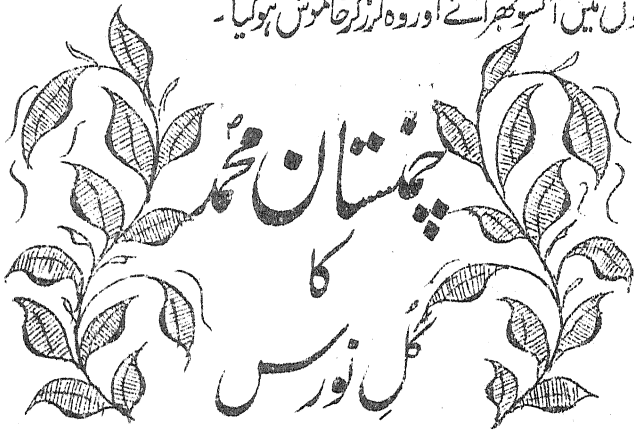 میں آنسو بھر آئے اور وہ لرز کر خاموش ہوگیا۔
چمنستان محمدؐ
کا
گُلِ نورس